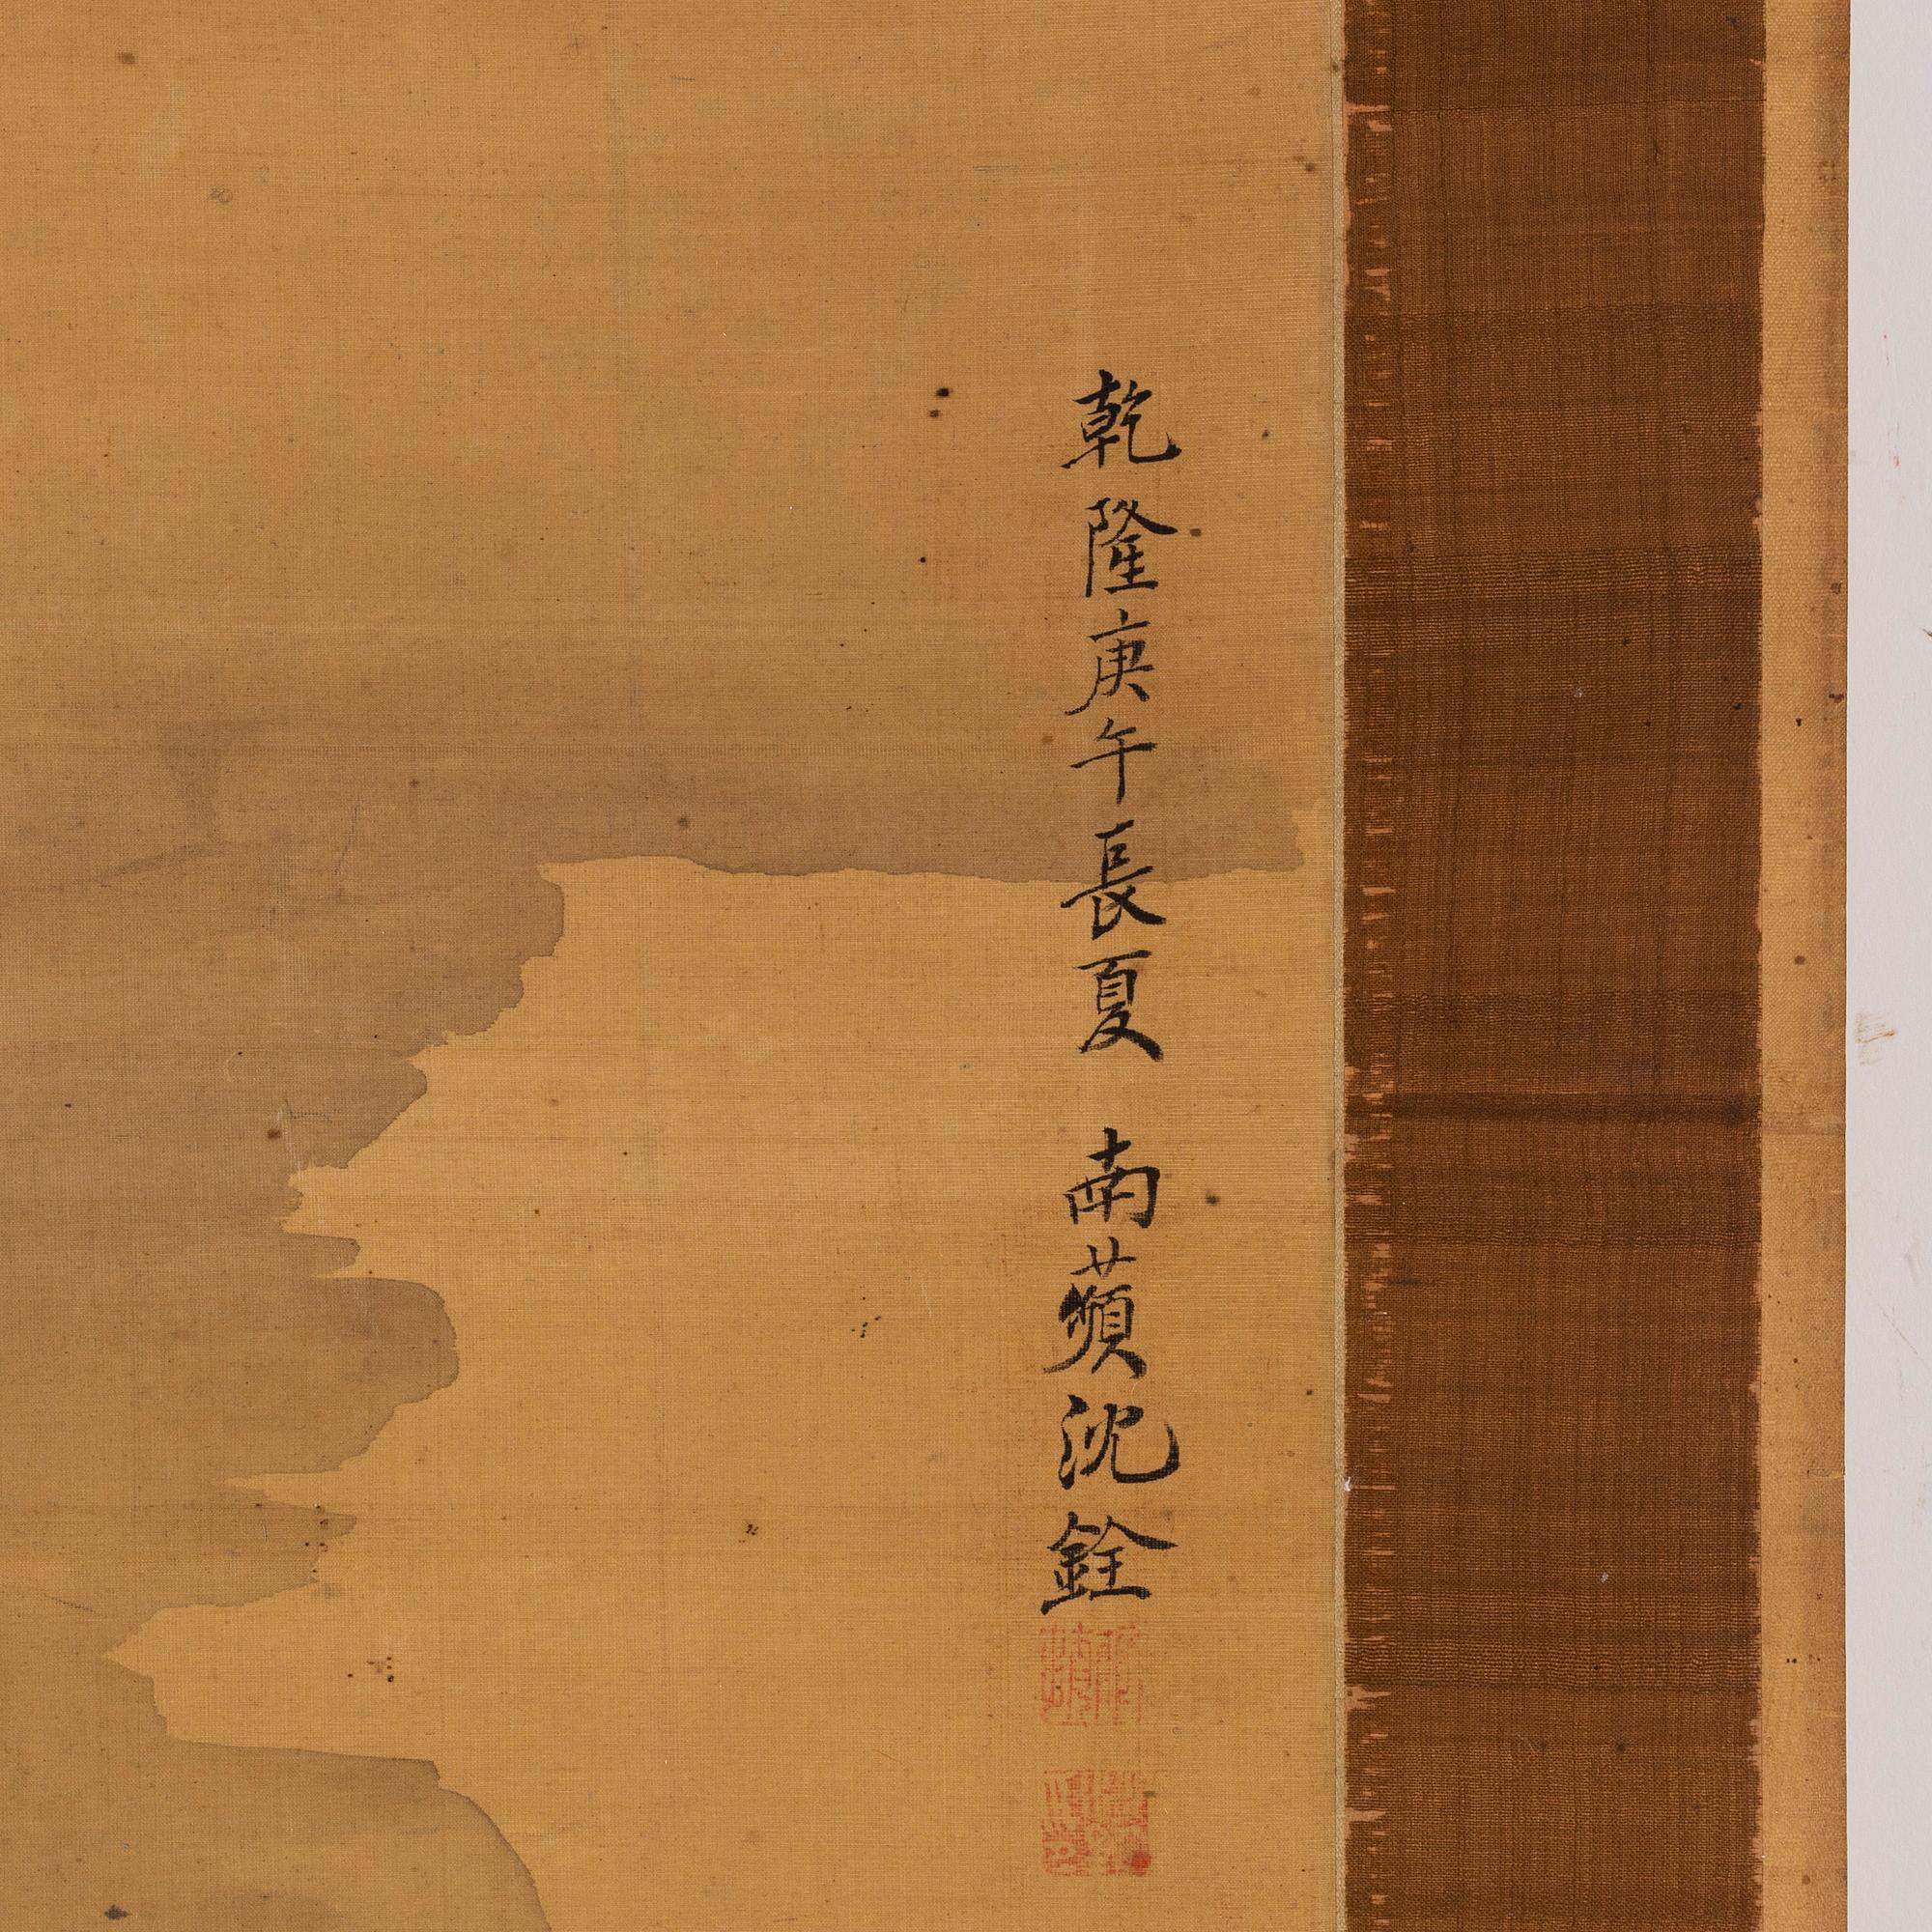 乾隆庚午長夏 南蘋沈銓